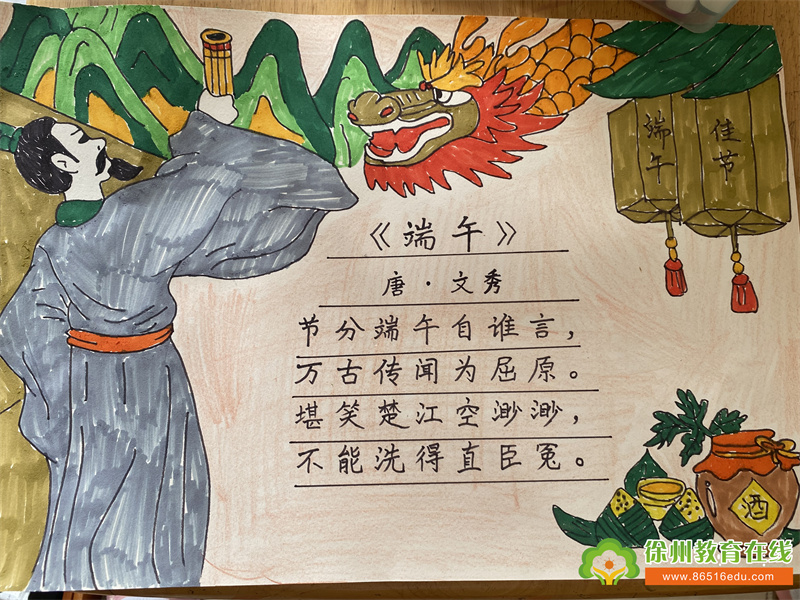 《端午》
唐·文秀
节分端午自谁言，
万古传闻为屈原。
堪笑楚江空渺渺，
不能洗得直臣冤。
端午
佳节
酒
徐州教育在线
www.86516edu.com